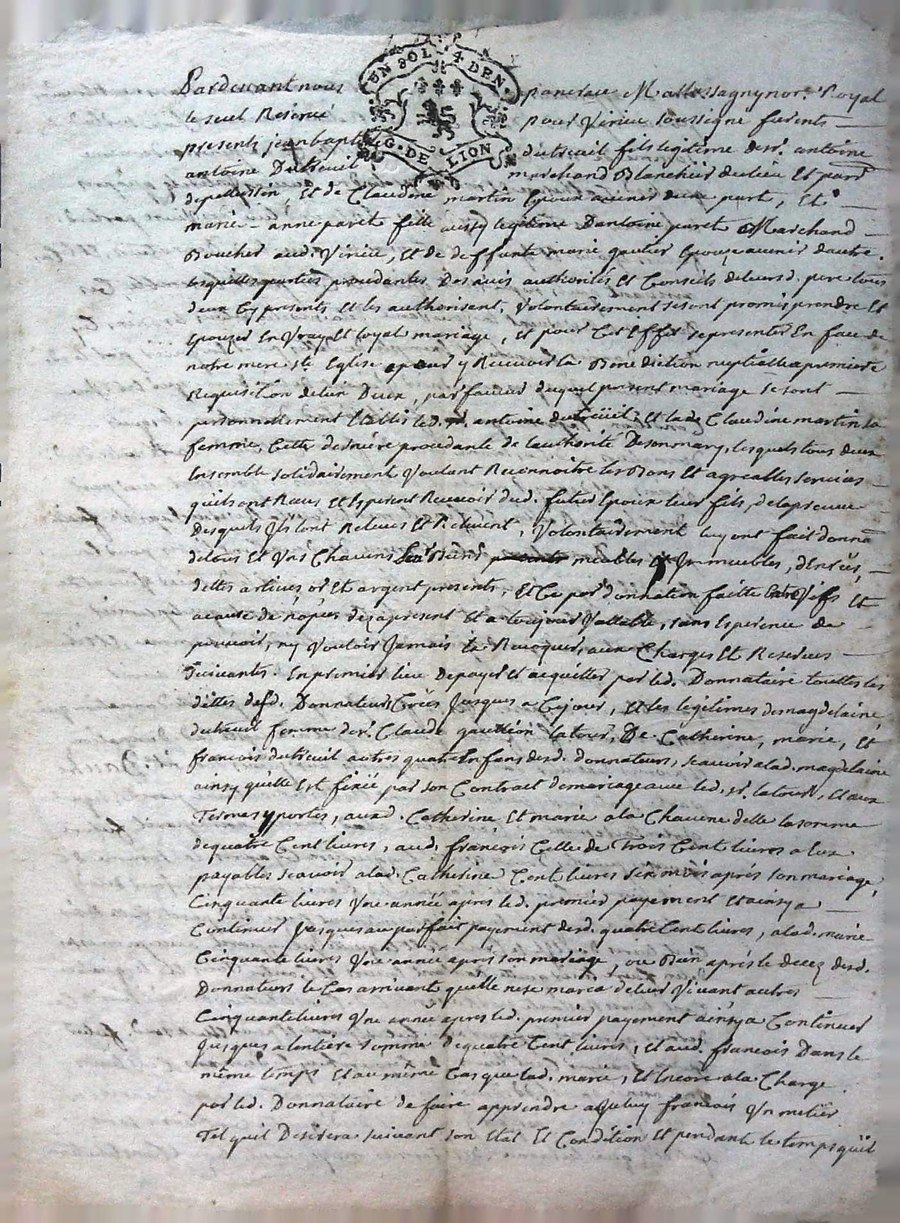 UN SOL 4 DEN.
G. DE LION
Pardevant nous francois Mallessagny nore. Royal
le seul Reservé pour Virieu soussigné furents
presents jean baptiste dutreuil fils legitime de sr. antoine
antoine Dutreuil marchand Blanchier du lieu Et parr
de pellussin, Et de Claudine martin Epoux avenir d'une part, Et
marie-anne paret fille aussy legitime D'antoine paret Marchand
Boucher aud. Virieu, Et de deffunte marie gautier Epouze avenir d'autre
lesquelles parties procedantes Des avis authorités Et Conseils de leurs d. pere tous
deux Cy presents et les authorisent, Volontairement se sont promis prendre Et
Epouzer En Vray Et loyal mariage, Et pour Cet Effet se presenter En face de
notre mere ste Eglise pour y Recevoir la Benediction nuptialle a premiere
Requisition de l'un D'eux, par faveur duquel present mariage se sont
personnellement Etablis led. sr. antoine dutreüil, Et lad. Claudine martin sa
femme, Cette derniere procedante de l'authorité De son mary, lesquels tous deux
Ensemble solidairement Voulant Reconnoitre les Bons Et agreables services
qu'ils ont Reçus Et Esperent Recevoir dud. futur Epoux leur fils, de la preuve
Desquels Ils l'ont Relevé Et Relevent, Volontairement luy ont fait donna
de tous Et Uns Chacuns leurs Biens meubles Et Immeubles, denrées,
dettes actives or Et argent presents, Et Ce par donnation faitte Entre Vifs Et
a cause de nopces dez a present Et a toujour Vallable, sans Esperence de
pouvoir, ny Vouloir Jamais la Revoquer, aux Charges Et Reserves
suivantes. En premier lieu De payer Et acquitter par led. Donnataire touttes les
dittes desd. Donnateurs Créés Jusques a Cejour, Et les legitimes de magdelaine
dutreuil femme de sr. Claude gauttier latour, De Catherine, marie, Et
francois dutreuil autres quatre Enfans desd. donnateurs, scavoir a lad. magdelaine
ainsy qu'elle Est fixée par son Contrait de mariage avec led. sr. latour, Et aux
Termes y portés, auxd. Catherine Et marie a la Chacune d'elle la somme
de quatre Cent livres, aud. françois Celle de Trois Cent livres a luy
payables scavoir a lad. Catherine Cent livres six mois après son mariage,
Cinquante livres Une année apres led. premier payement Et ainsy a
Continuer Jusques au parfait payement desd. quatre Cent livres, a lad. marie
Cinquante livres Une année apres son mariage, ou Bien aprés le decez desd.
Donnateurs le Cas arrivant qu'elle ne se maria de leur Vivant autres
Cinquante livres Une année apres led. premier payement ainsy a Continuer
Jusques a l'entiere somme de quatre Cent livres, Et aud. francois Dans le
même temps Et au même Cas que lad. marie, Et Encore a la Charge
par led. Donnataire de faire apprendre a Iceluy francois Un metier
Tel qu'il Desirera suivant son Etat Et Condition Et pendant le temps qu'il